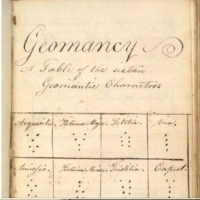 Geomancy
A Table of the sixteen
Geomantic Characters
Acquisitio. Fortuna Major. Letitia. Via.
Amissio. Fortuna Minor. Tristitia. Caput.